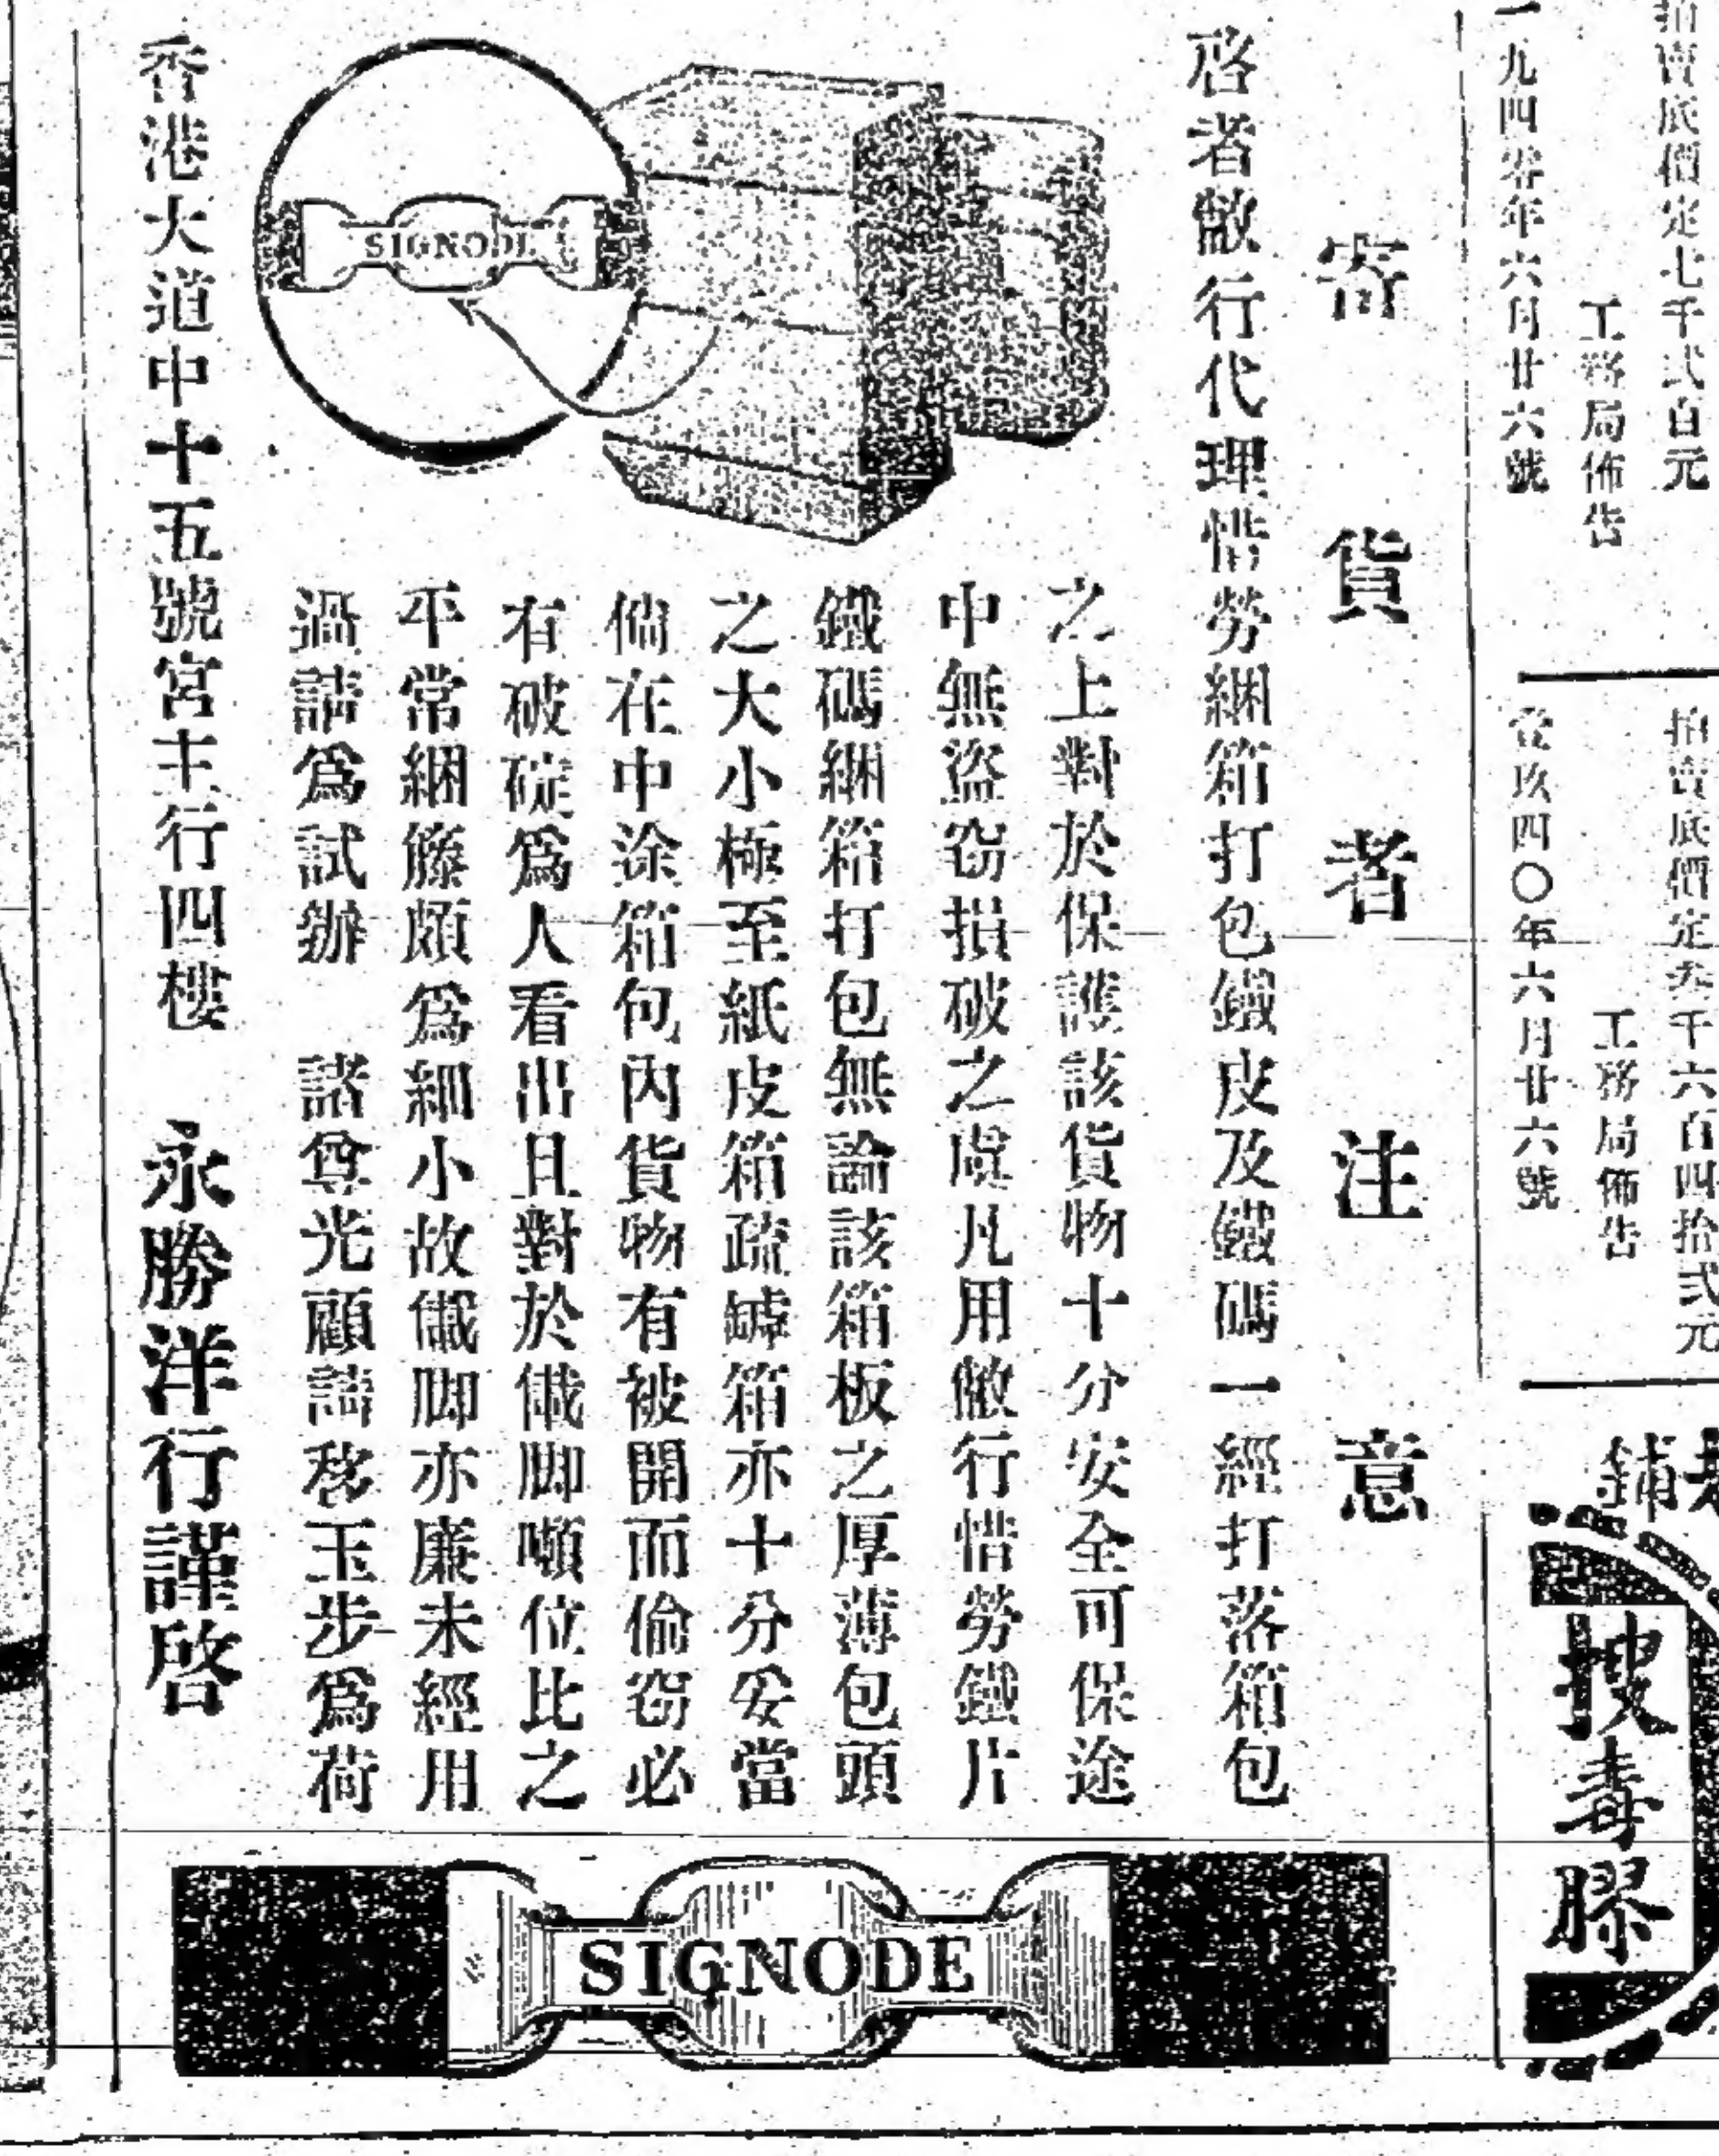 拍賣底價定七千弍百元
工務局佈告
一九四零年六月廿六號
拍賣底價定叁千六百四拾弍元
工務局佈告
壹玖四〇年六月廿六號
寄貨者注意
啓者敝行代理惜勞綑箱打包鐵皮及鐵碼一經打落箱包
之上對於保護該貨物十分安全可保途
中無盜窃損破之虞凡用敝行惜勞鐵片
鐵碼綑箱打包無論該箱板之厚薄包頭
之大小極至紙皮箱疏罅箱亦十分妥當
倘在中涂箱包內貨物有被開而偷窃必
有破碇爲人看出且對於儎脚噸位比之
平常綑籐頗爲細小故儎脚亦廉未經用
過請爲試辦 諸尊光顧請移玉步爲荷
香港大道中十五號宮主行四樓 永勝洋行謹啓
SIGNODE
SIGNODE
鋪
搜毒膠